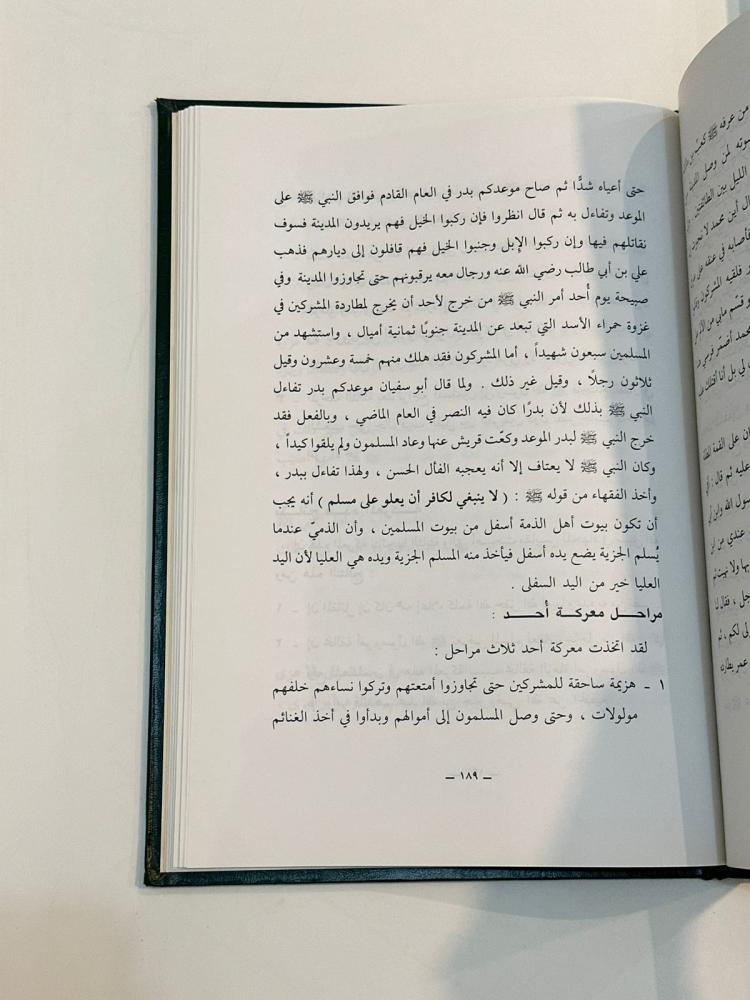 حتى أعياه شدًّا ثم صاح موعدكم بدر في العام القادم فوافق النبي ﷺ على
الموعد وتفاءل به ثم قال انظروا فإن ركبوا الخيل فهم يريدون المدينة فسوف
نقاتلهم فيها وإن ركبوا الإبل وجنبوا الخيل فهم قافلون إلى ديارهم فذهب
علي بن أبي طالب رضي الله عنه ورجال معه يرقبونهم حتى تجاوزوا المدينة وفي
صبيحة يوم أُحد أمر النبي ﷺ من خرج لأحد أن يخرج لمطاردة المشركين في
غزوة حمراء الأسد التي تبعد عن المدينة جنوبًا ثمانية أميال ، واستشهد من
المسلمين سبعون شهيداً ، أما المشركون فقد هلك منهم خمسة وعشرون وقيل
ثلاثون رجلًا ، وقيل غير ذلك . ولما قال أبو سفيان موعدكم بدر تفاءل
النبي ﷺ بذلك لأن بدرًا كان فيه النصر في العام الماضي ، وبالفعل فقد
خرج النبي ﷺ لبدر الموعد وكعّت قريش عنها وعاد المسلمون ولم يلقوا كيداً ،
وكان النبي ﷺ لا يعتاف إلا أنه يعجبه الفأل الحسن ، ولهذا تفاءل ببدر ،
وأخذ الفقهاء من قوله ﷺ : ( لا ينبغي لكافر أن يعلو على مسلم ) أنه يجب
أن تكون بيوت أهل الذمة أسفل من بيوت المسلمين ، وأن الذميّ عندما
يُسلم الجزية يضع يده أسفل فيأخذ منه المسلم الجزية ويده هي العليا لأن اليد
العليا خير من اليد السفلى .
مراحل معركة أُحد :
لقد اتخذت معركة أحد ثلاث مراحل :
١ ـ هزيمة ساحقة للمشركين حتى تجاوزوا أمتعتهم وتركوا نساءهم خلفهم
مولولات ، وحتى وصل المسلمون إلى أموالهم وبدأوا في أخذ الغنائم
ـ ١٨٩ ـ